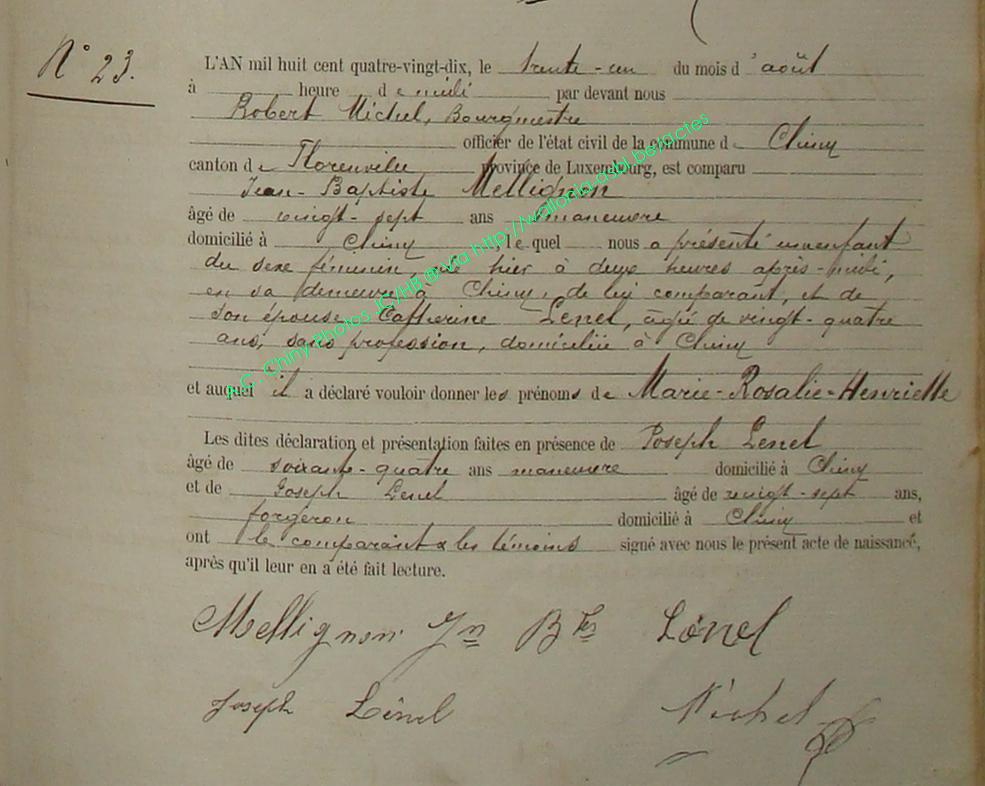 N° 23.
L'AN mil huit cent quatre-vingt-dix, le trente-un du mois d'août
à heure de midi par devant nous
Robert Michel, Bourgmestre
officier de l'état civil de la commune de Chiny
canton de Florenville province de Luxembourg, est comparu
Jean-Baptiste Mellignon
âgé de vingt-sept ans manœuvre
domicilié à Chiny, lequel nous a présenté un enfant
du sexe féminin, né hier à deux heures après-midi,
en sa demeure à Chiny, de lui comparant, et de
son épouse Catherine Lenel, âgée de vingt-quatre
ans, sans profession, domiciliée à Chiny
et auquel il a déclaré vouloir donner les prénoms de Marie-Rosalie-Henriette
Les dites déclaration et présentation faites en présence de Joseph Lenel
âgé de soixante-quatre ans manœuvre domicilié à Chiny
et de Joseph Lenel âgé de vingt-sept ans,
forgeron domicilié à Chiny et
ont le comparant & les témoins signé avec nous le présent acte de naissance,
après qu'il leur en a été fait lecture.
Mellignon Jn Bte Lénel
Joseph Lénel Michel
Chiny Photos JC/HB @ via http://wallonia.asbl.be/actes